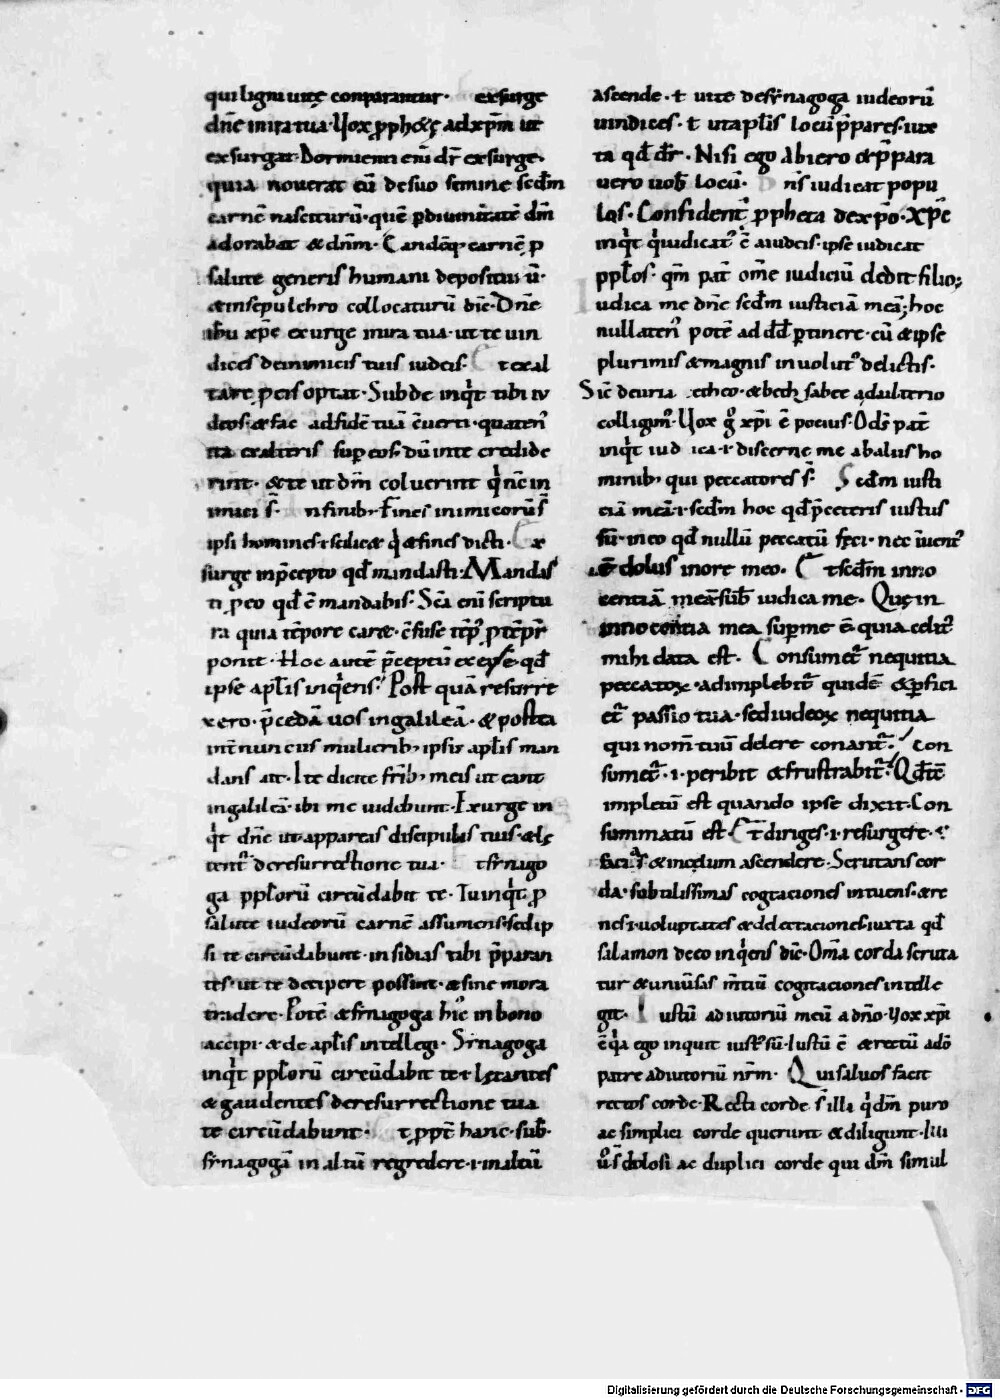 qui ligni uitę conparantur. exsurge
dñe in ira tua. Uox ꝓph&ę ad xp̄m ut
exsurgat. Dormienti em̄ dr̄ exsurge.
quia nouerat eū de suo semine scd̄m
carnē nasciturū. quē ꝑ diuinitatē dm̄
adorabat & dnm̄. carnē ꝓ
salute generis humani
& in sepulchro collocaturū dic̄. Dñe
ih̄u xp̄e exurge in ira tua. ut te uin
dices de inimicis tuis iudeis. Et exal
tare ꝑ eis optat. Subde inq̇t tibi iu
deos. & fac ad fidē tuā c̄uerti. quaten᾽
ita exalteris suꝑ eos. dū in te credide
rint. & te ut dm̄ coluerint q̇ nc̄ in
imici s̄. n finib; Fines inimicorū s̄
ipsi homines. i. scilic& q̇ & fines dicti. Ex
surge in p̄cepto qd̄ mandasti. Mandas
ti ꝓ eo qd̄ ē mandabis. Sc̄a eni scriptu
ra quia tēpore
ponit. Hoc autē p̄ceptū qd̄
ipse apl̄is inq̇ens. Post quā resurre
xero. p̄cedā uos in galileā. & postea
int̄ nuncius mulierib; ipsis apl̄is man
dans ait. Ite dicite fr̄ib; meis ut eant
in galileā. ibi me uidebunt. Exurge in
q̇t dñe ut appareas discipulis tuis. & lę
tent᾽ de resurrectione tua. t synago
ga ppl̄orū circūdabit te. Tu inq̇t ꝓ
salute iudeorū carnē assumens. sed ip
si te circūdabunt. insidias tibi p̄paran
tes. ut te decipere possint. & sine mora
tradere. Potē & synagoga hic᾽ in bono
accipi. & de apl̄is intellegi. Synagoga
inq̇t ppl̄orū circūdabit te. i. lętantes
& gaudentes de resurrectione tua
te circūdabunt. t ꝓpt̄ hanc. sub.
synagogā in altū regredere. i. in altū
ascende. ł ut te de synagoga iudeorū
uindices. ł ut apl̄is locū p̄pares. iux
ta qd̄ dr̄. Nisi ego abiero & p̄para
uero uob̄ locū. D n̄s iudicat popu
los. Confident᾽ ꝓpheta de xp̄o. Xp̄c
inq̇t q̇ iudicat᾽ ē a iudeis. ipse iudicat
ppl̄os. qm̄ pat᾽ om̄e iudiciū dedit filio;
Iudica me dñe scd̄m iusticiā meā; hoc
nullaten᾽ potē ad dd̄ ꝑtinere. cū & ipse
plurimis & magnis inuolut᾽ delictis.
Sic̄ de uria etheo. & beth sabee adulterio
colligim᾽. Uox g᾽ xp̄i ē pocius. Od̄s pat̄
inq̇t iudica. i. discerne me ab aliis ho
minib; qui peccatores s̄. Scd̄m iusti
ciā meā. i. scd̄m hoc qd̄ p̄ ceteris iustus
sū. in eo qd̄ nullū peccatū feci. nec inuent᾽
ē dolus in ore meo. Et scd̄m inno
centiā meā. sub̄ iudica me. Quę in
innocentia mea suꝑ me ē. quia celit᾽
mihi data est. Consumet᾽ nequitia
peccatoꝝ. adimplebit᾽ quidē & ꝑfici
et᾽ passio tua. sed iudeoꝝ nequitia
qui nom̄ tuū delere conant᾽. Con
sumet᾽. i. peribit & frustrabit᾽. Qd̄
impletū est quando ipse dixit. Con
summatū est. Et diriges. i. resurgere
facias & in celum ascendere. Scrutans cor
da. subtilissimas cogitaciones intuens. & re
nes. i. uoluptates & delectaciones. iuxta qd̄
salamon de eo inq̇ens dic̄. Om̄a corda scruta
tur & uniūsas m̄tiū cogitaciones intelle
git. Iustū adiutoriū meū a dño. Uox xp̄i
ē q̇a ego inquit iust᾽ sū. Iustū ē & rectū a dō
patre adiutoriū nr̄m. Qui saluos facit
rectos corde. Recti corde s̄ illi q̇ dm̄ puro
ac simplici corde querunt & diligunt. Illi
ū s̄ dolosi ac duplici corde qui dm̄ simul